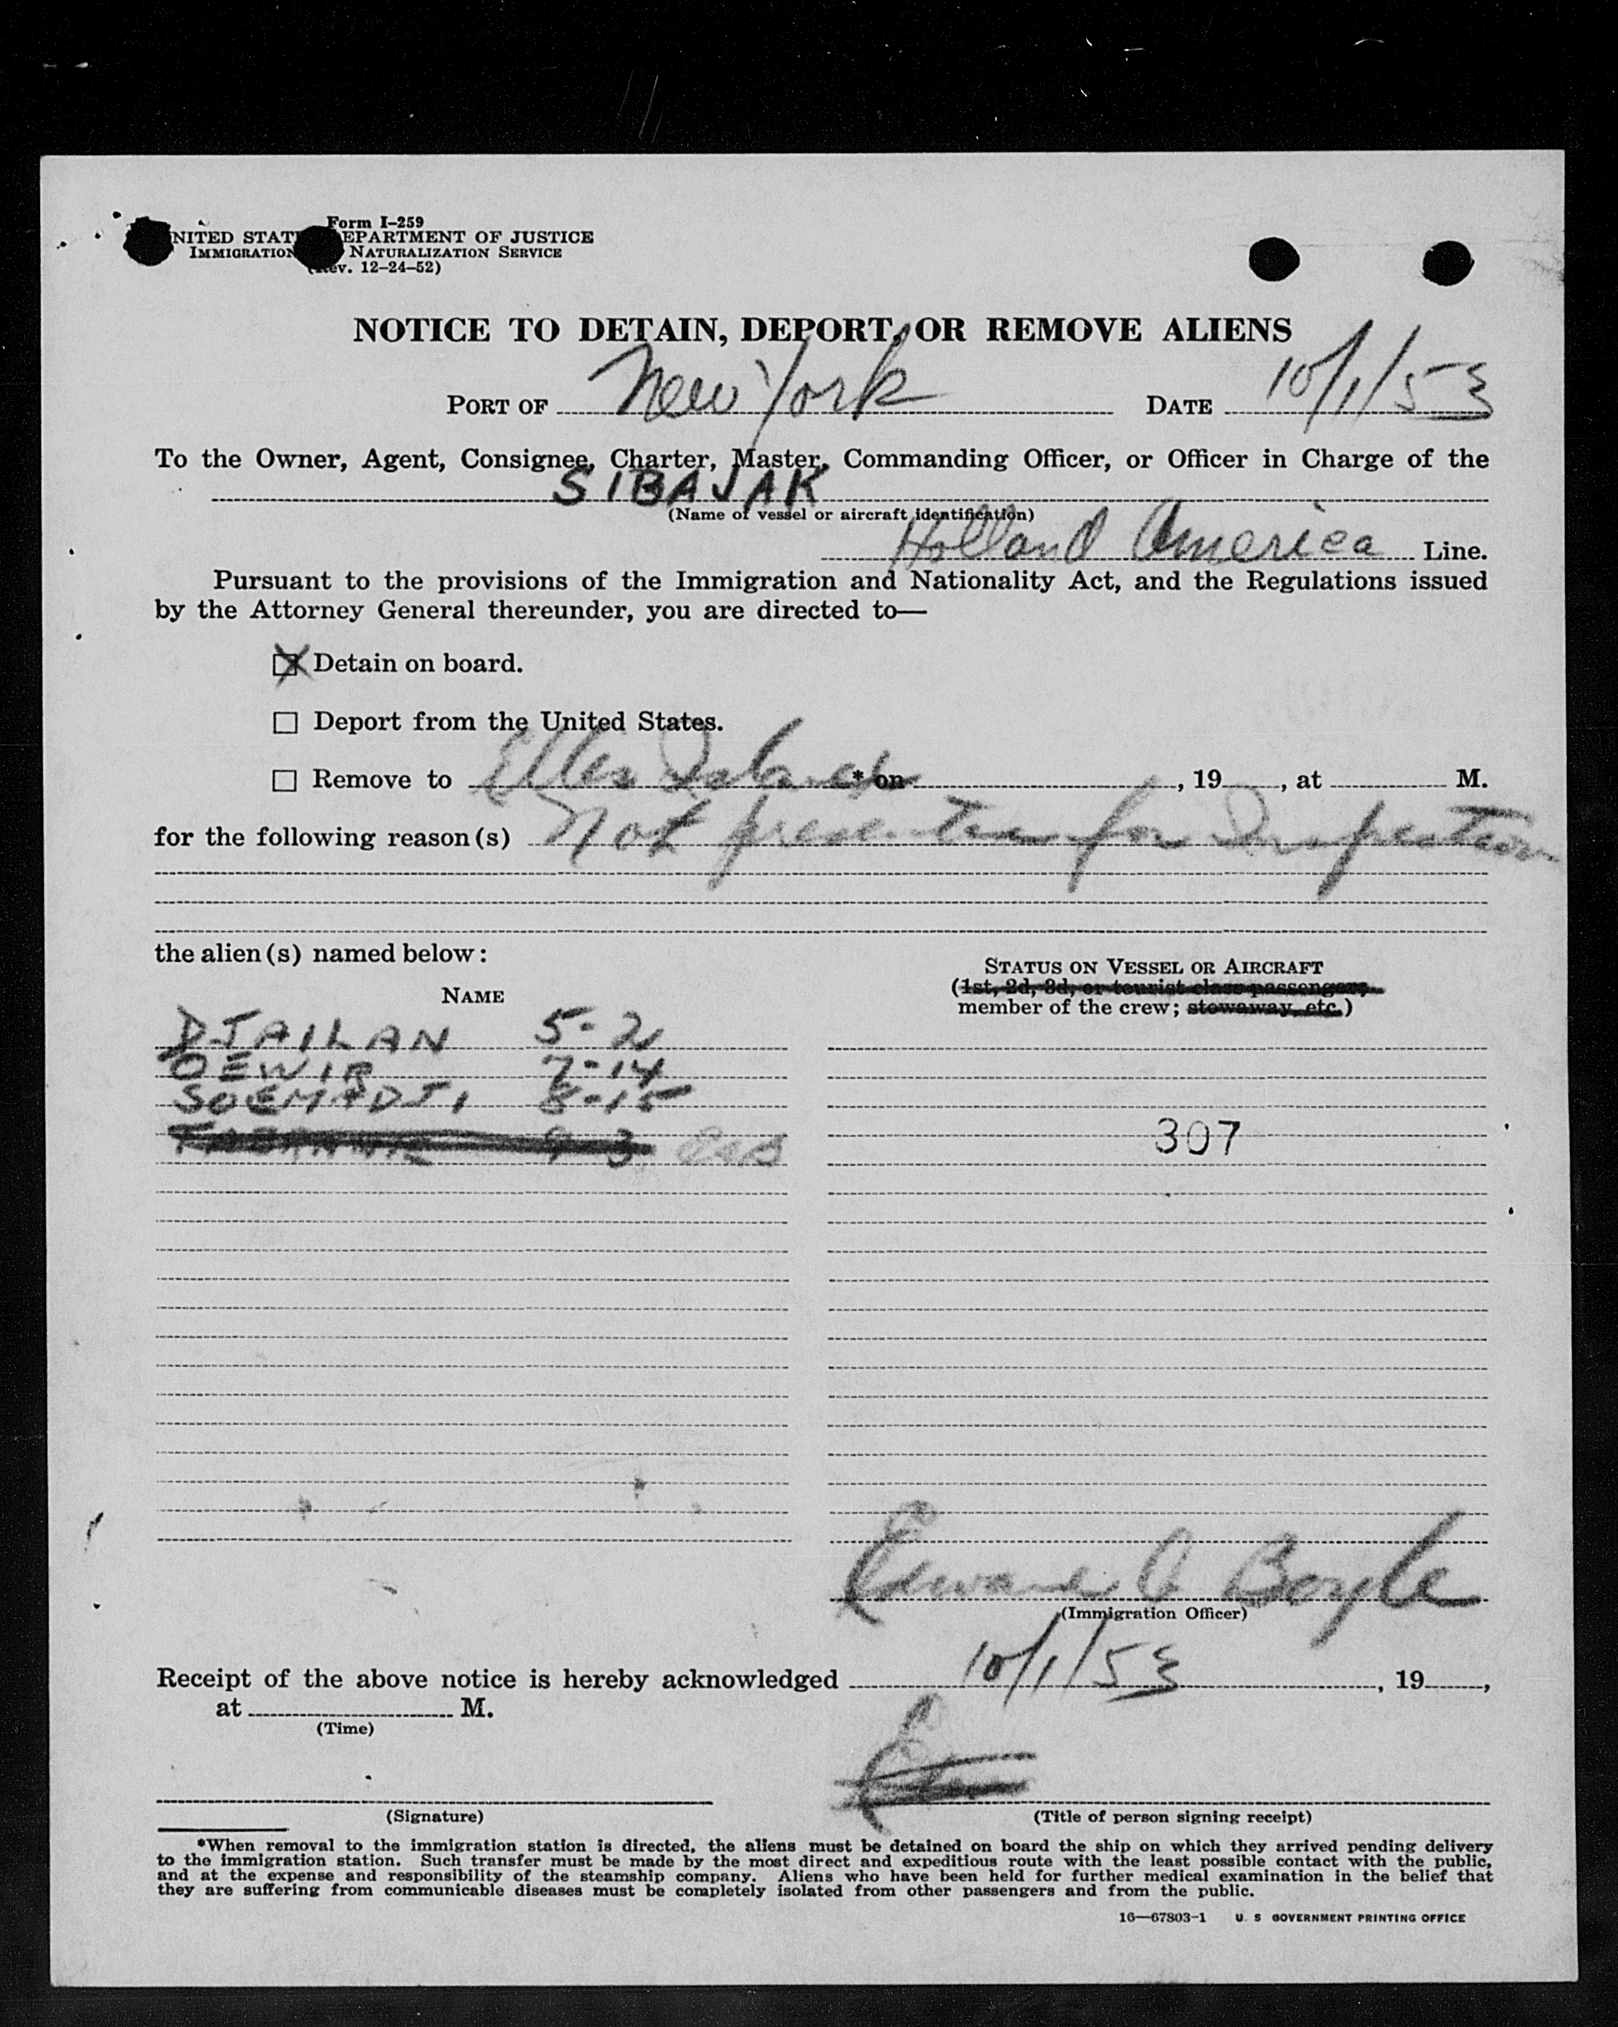 Form I-259
NITED STAT EPARTMENT OF JUSTICE
IMMIGRATION NATURALIZATION SERVICE
ev. 12-24-52)
NOTICE TO DETAIN, DEPORT, OR REMOVE ALIENS
PORT OF New York DATE 10/1/53
To the Owner, Agent, Consignee, Charter, Master, Commanding Officer, or Officer in Charge of the
SIBAJAK
(Name of vessel or aircraft identification)
Holland America Line.
Pursuant to the provisions of the Immigration and Nationality Act, and the Regulations issued
by the Attorney General thereunder, you are directed to—
Detain on board.
Deport from the United States.
Remove to Ellis Island * on , 19 , at M.
for the following reason(s) Not presented for Inspection
the alien(s) named below:
STATUS ON VESSEL OR AIRCRAFT
(1st, 2d, 3d, or tourist class passengers,
NAME
member of the crew; stowaway, etc.)
DJAILAN 5-2
OEWIR 7-14
SOEMADJI 8-15
307
Edward A Boyle
(Immigration Officer)
Receipt of the above notice is hereby acknowledged 10/1/53 , 19 ,
at M.
(Time)
(Signature) (Title of person signing receipt)
*When removal to the immigration station is directed, the aliens must be detained on board the ship on which they arrived pending delivery
to the immigration station. Such transfer must be made by the most direct and expeditious route with the least possible contact with the public,
and at the expense and responsibility of the steamship company. Aliens who have been held for further medical examination in the belief that
they are suffering from communicable diseases must be completely isolated from other passengers and from the public.
16—67803-1 U. S GOVERNMENT PRINTING OFFICE